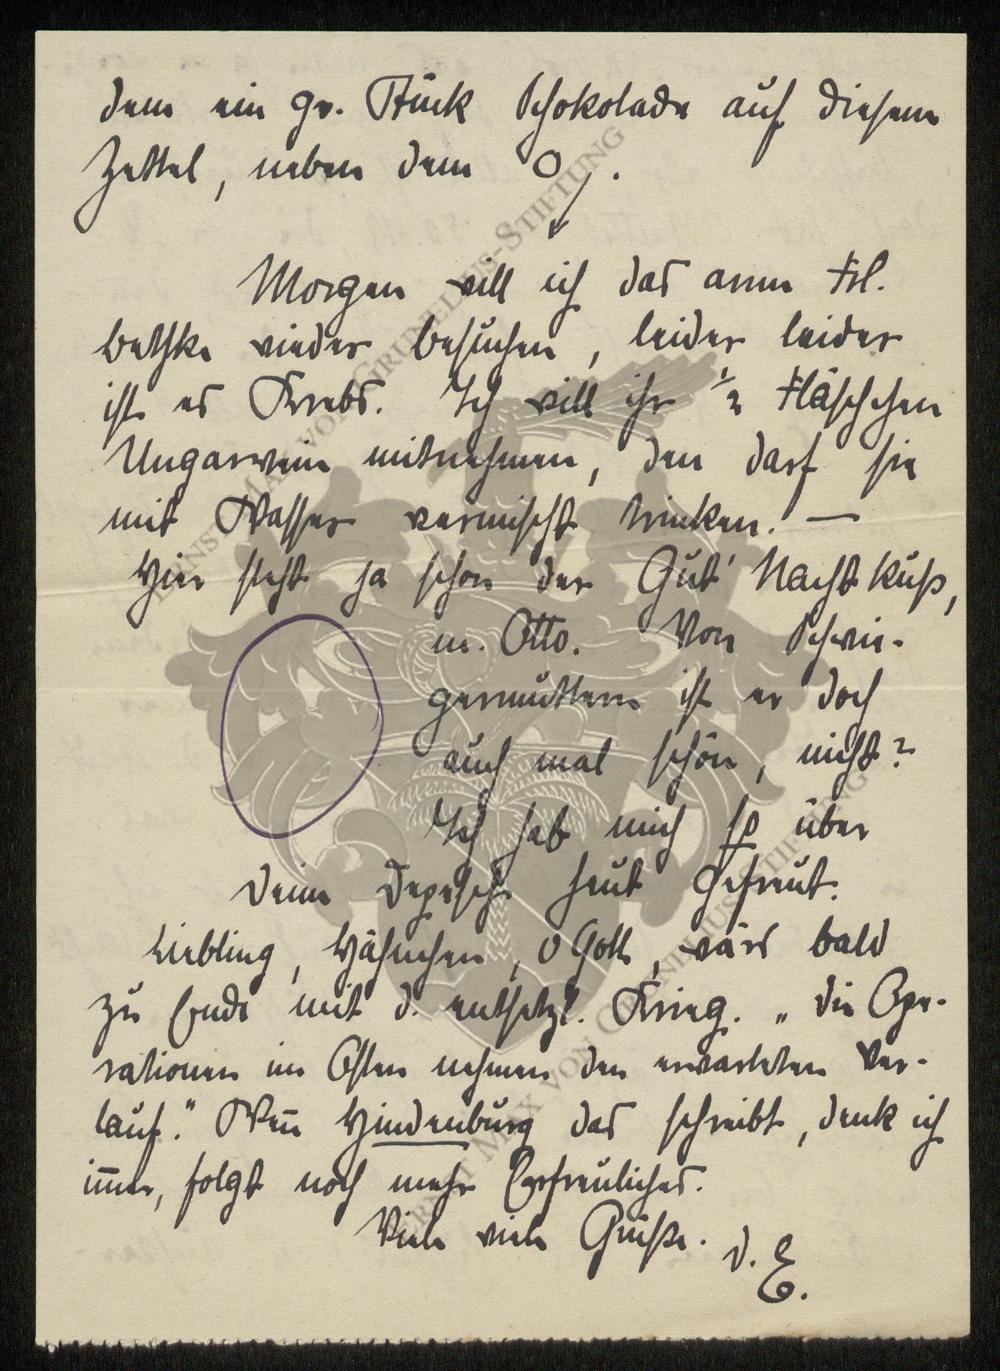 dem ein gr. Stück Schokolade auf diesem
Zettel, neben dem O.
Morgen will ich das arme Frl.
Bethke wieder besuchen, leider leider
ist es Krebs. Ich will ihr 1/2 Fläschchen
Ungarwein mitnehmen, den darf sie
mit Wasser vermischt trinken. —
Hier steht ja schon der Gut' Nacht Kuß,
m. Otto. Von Schwie-
germuttern ist er doch
auch mal schön, nicht?
Ich hab mich so über
Deine Depesche heut gefreut.
Liebling, Hähnchen, o Gott, wärs bald
zu Ende mit d. entsetzl. Krieg. „die Ope-
rationen im Osten nehmen den erwarteten Ver-
lauf." Wen̄ Hindenburg das schreibt, denk ich
im̄er, folgt noch mehr Erfreuliches.
Viele viele Grüße. D. E.
ERNST MAX VON GRUNELIUS-STIFTUNG
ERNST MAX VON GRUNELIUS-STIFTUNG